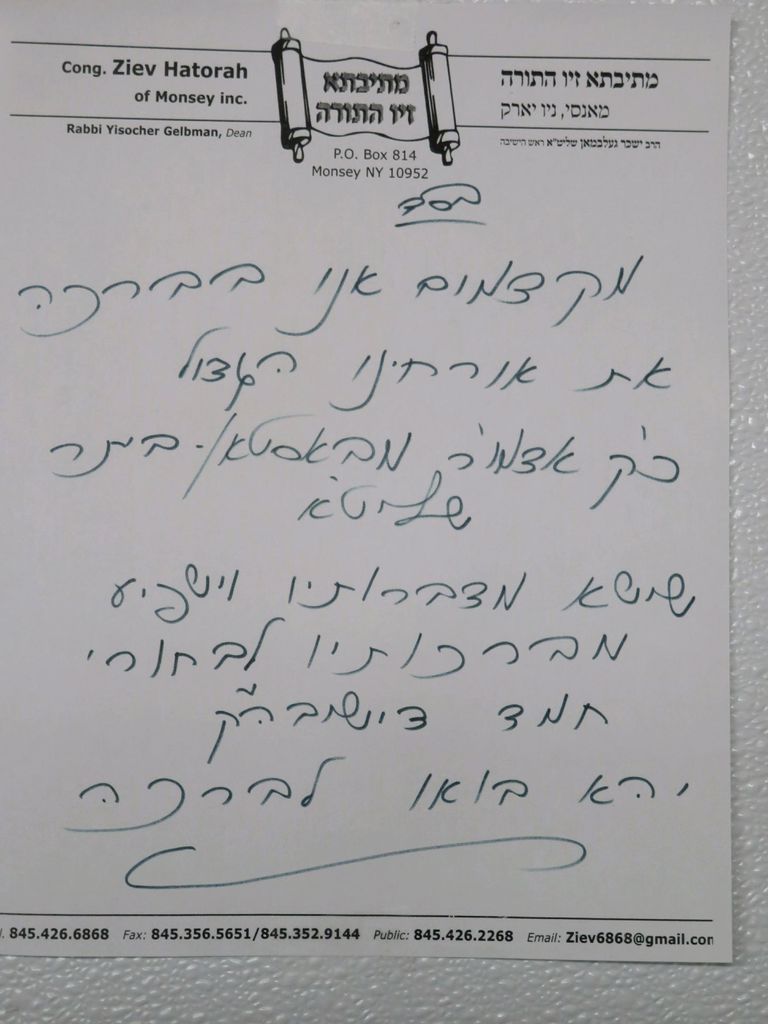 Cong. Ziev Hatorah
of Monsey inc.
Rabbi Yisocher Gelbman, Dean
מתיבתא
זיו התורה
P.O. Box 814
Monsey NY 10952
מתיבתא זיו התורה
מאנסי, ניו יארק
הרב ישכר געלבמאן שליט"א ראש הישיבה
בסד
מקדמים אני בברכה
את אורחינו הגדול
כ'ק אדמו'ר מבאסטאן-ביתר
שליט'א
שישא מדברותיו וישפיע
מברכותיו לבחורי
חמד דישוב הק'
יהא בואו לברכה
845.426.6868 Fax: 845.356.5651/845.352.9144 Public: 845.426.2268 Email: Ziev6868@gmail.con